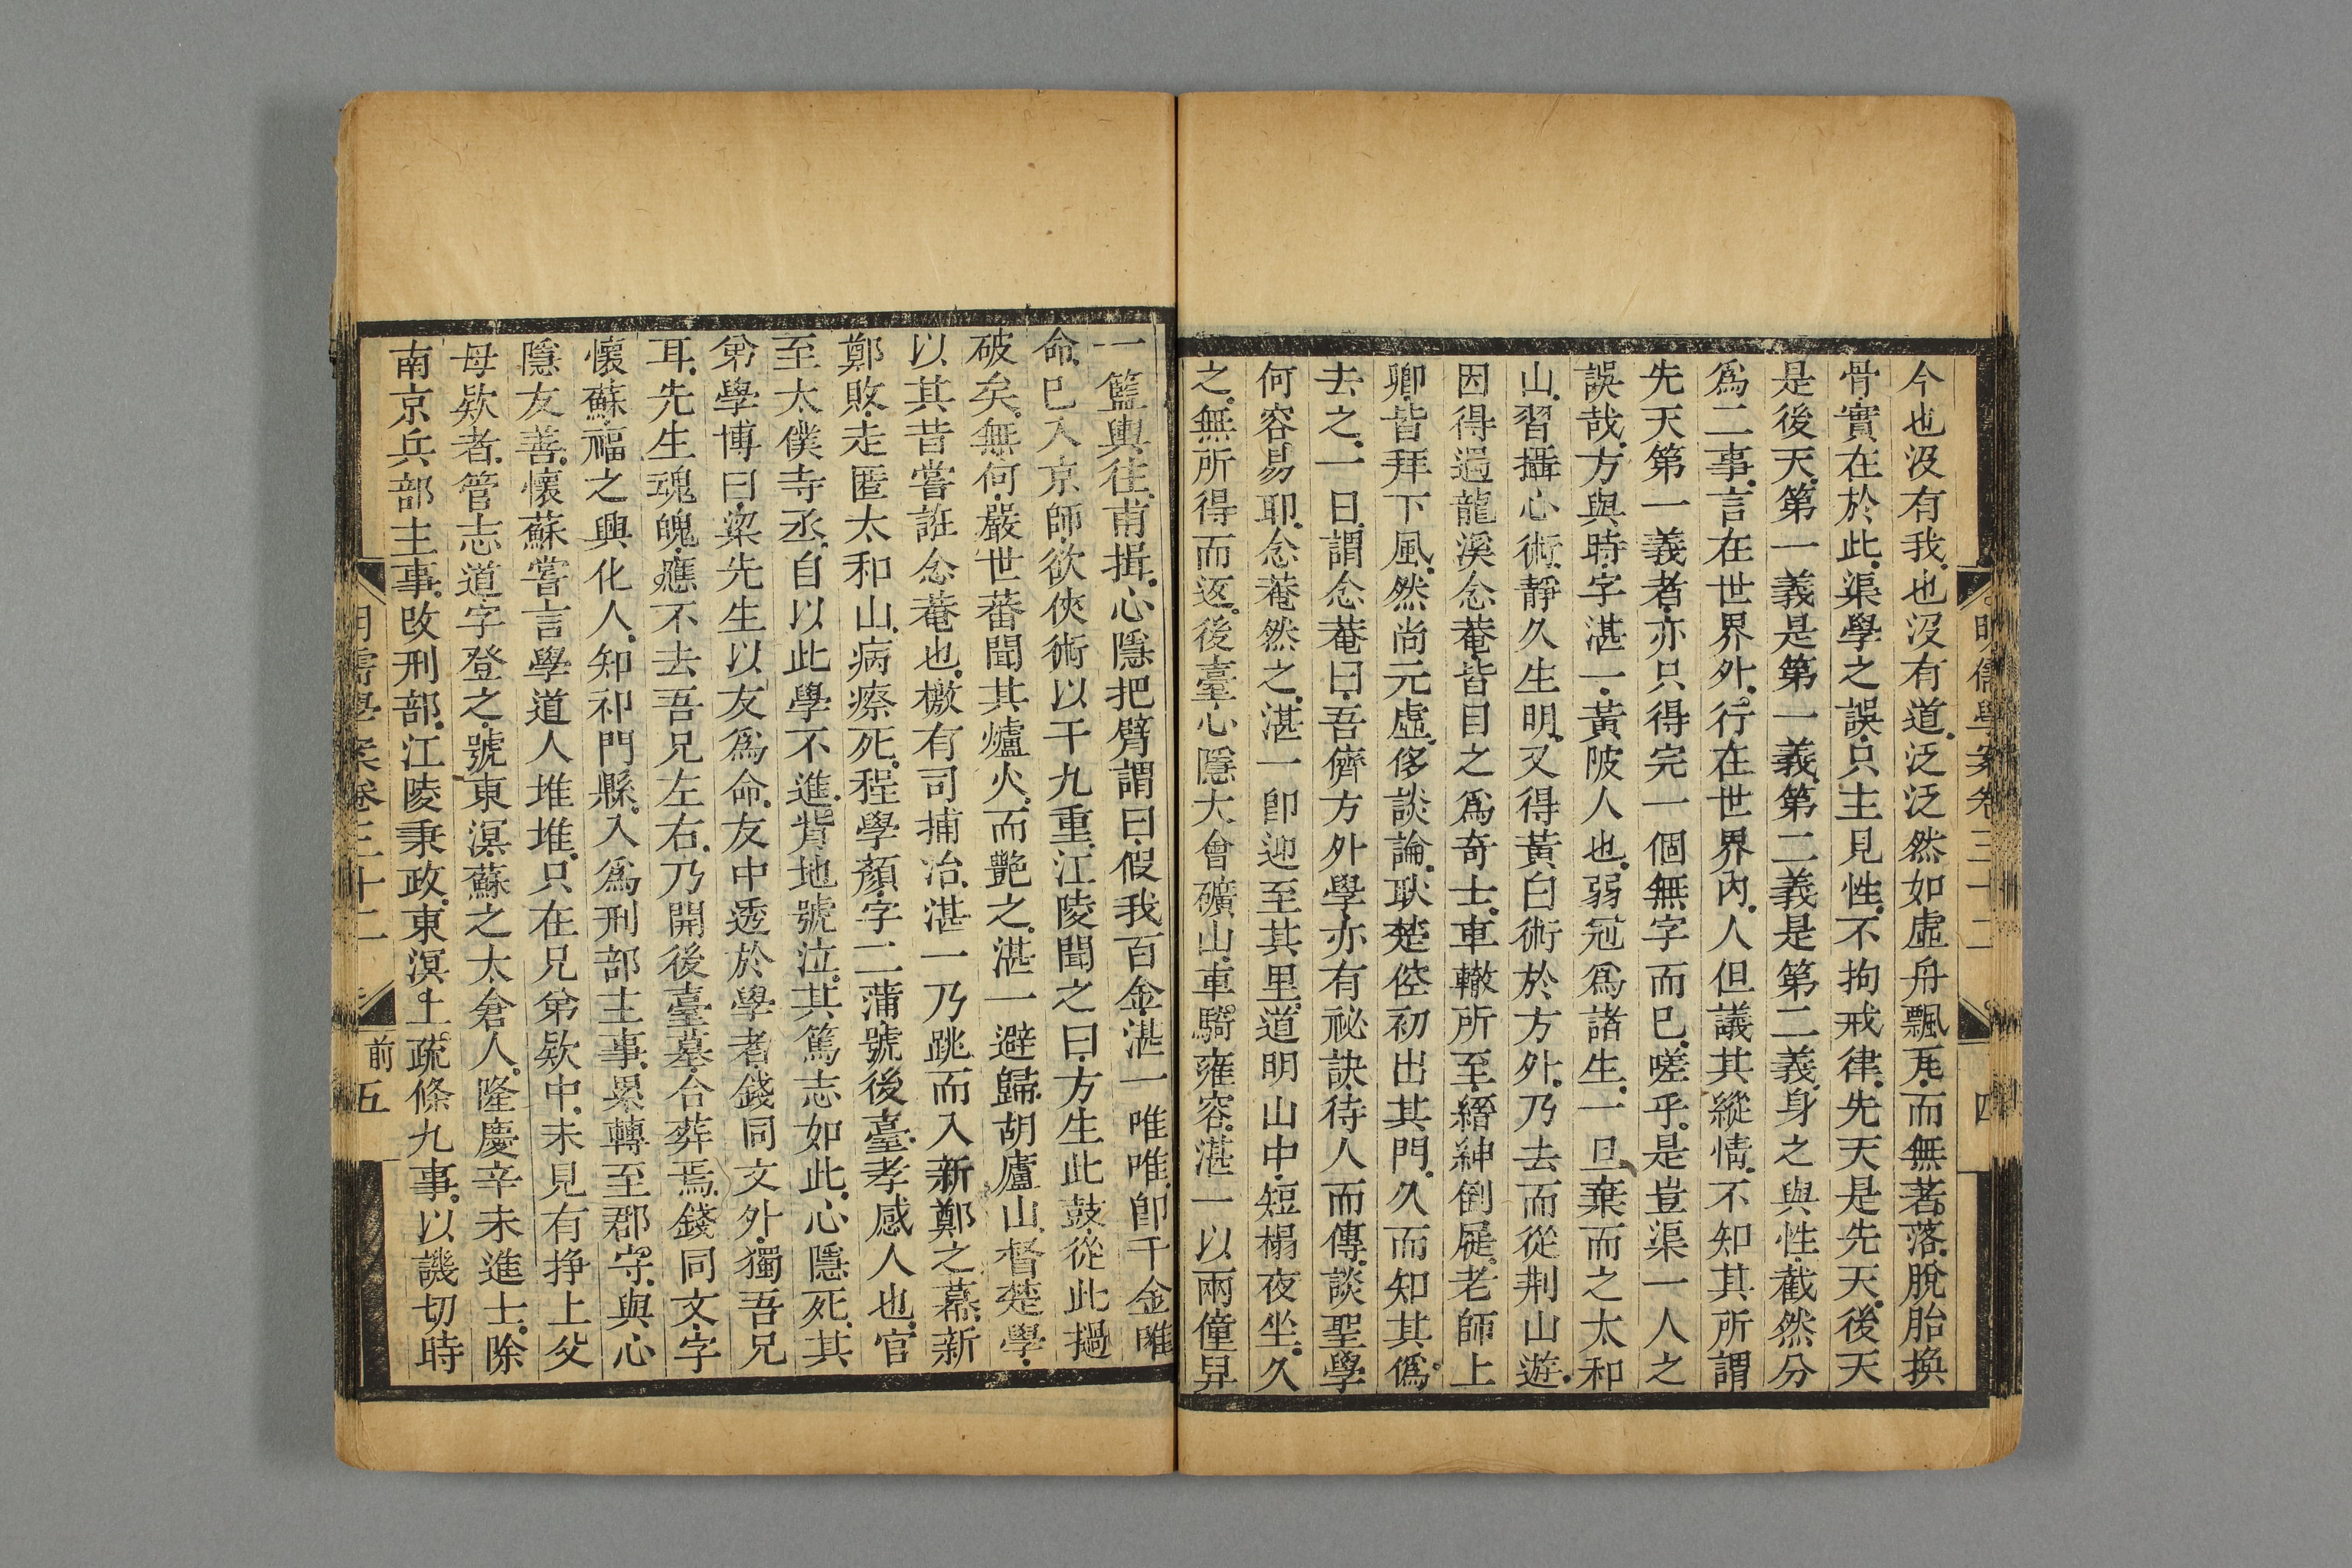 明儒學案卷三十二
四
今也沒有我也沒有道泛泛然如虛舟飄瓦而無著落脫胎換
骨實在於此渠學之誤只主見性不拘戒律先天是先天後天
是後天第一義是第一義第二義是第二義身之與性截然分
爲二事言在世界外行在世界內人但議其縱情不知其所謂
先天第一義者亦只得完一個無字而已嗟乎是豈渠一人之
誤哉方與時字湛一黃陂人也弱冠爲諸生一旦棄而之太和
山習攝心術靜久生明又得黃白術於方外乃去而從荆山遊
因得遇龍溪念菴皆目之爲奇士車轍所至縉紳倒屣老師上
卿皆拜下風然尚元虛侈談論耿楚倥初出其門久而知其僞
去之一日謂念菴曰吾儕方外學亦有祕訣待人而傳談聖學
何容易耶念菴然之湛一卽迎至其里道明山中短榻夜坐久
之無所得而返後臺心隱大會礦山車騎雍容湛一以兩僮舁
一籃輿往甫揖心隱把臂謂曰假我百金湛一唯唯卽千金唯
命已入京師欲俠術以干九重江陵聞之曰方生此鼓從此撾
破矣無何嚴世蕃聞其爐火而艷之湛一避歸胡廬山督楚學
以其昔嘗誑念菴也檄有司捕治湛一乃跳而入新鄭之幕新
鄭敗走匿太和山病瘵死程學顏字二蒲號後臺孝感人也官
至太僕寺丞自以此學不進背地號泣其篤志如此心隱死其
弟學博曰梁先生以友爲命友中透於學者錢同文外獨吾兄
耳先生魂魄應不去吾兄左右乃開後臺墓合葬焉錢同文字
懷蘇福之興化人知祁門縣入爲刑部主事累轉至郡守與心
隱友善懷蘇嘗言學道人堆堆只在兄弟欵中未見有掙上父
母欵者管志道字登之號東溟蘇之太倉人隆慶辛未進士除
南京兵部主事改刑部江陵秉政東溟上疏條九事以譏切時
明儒學案卷三十二
前
五